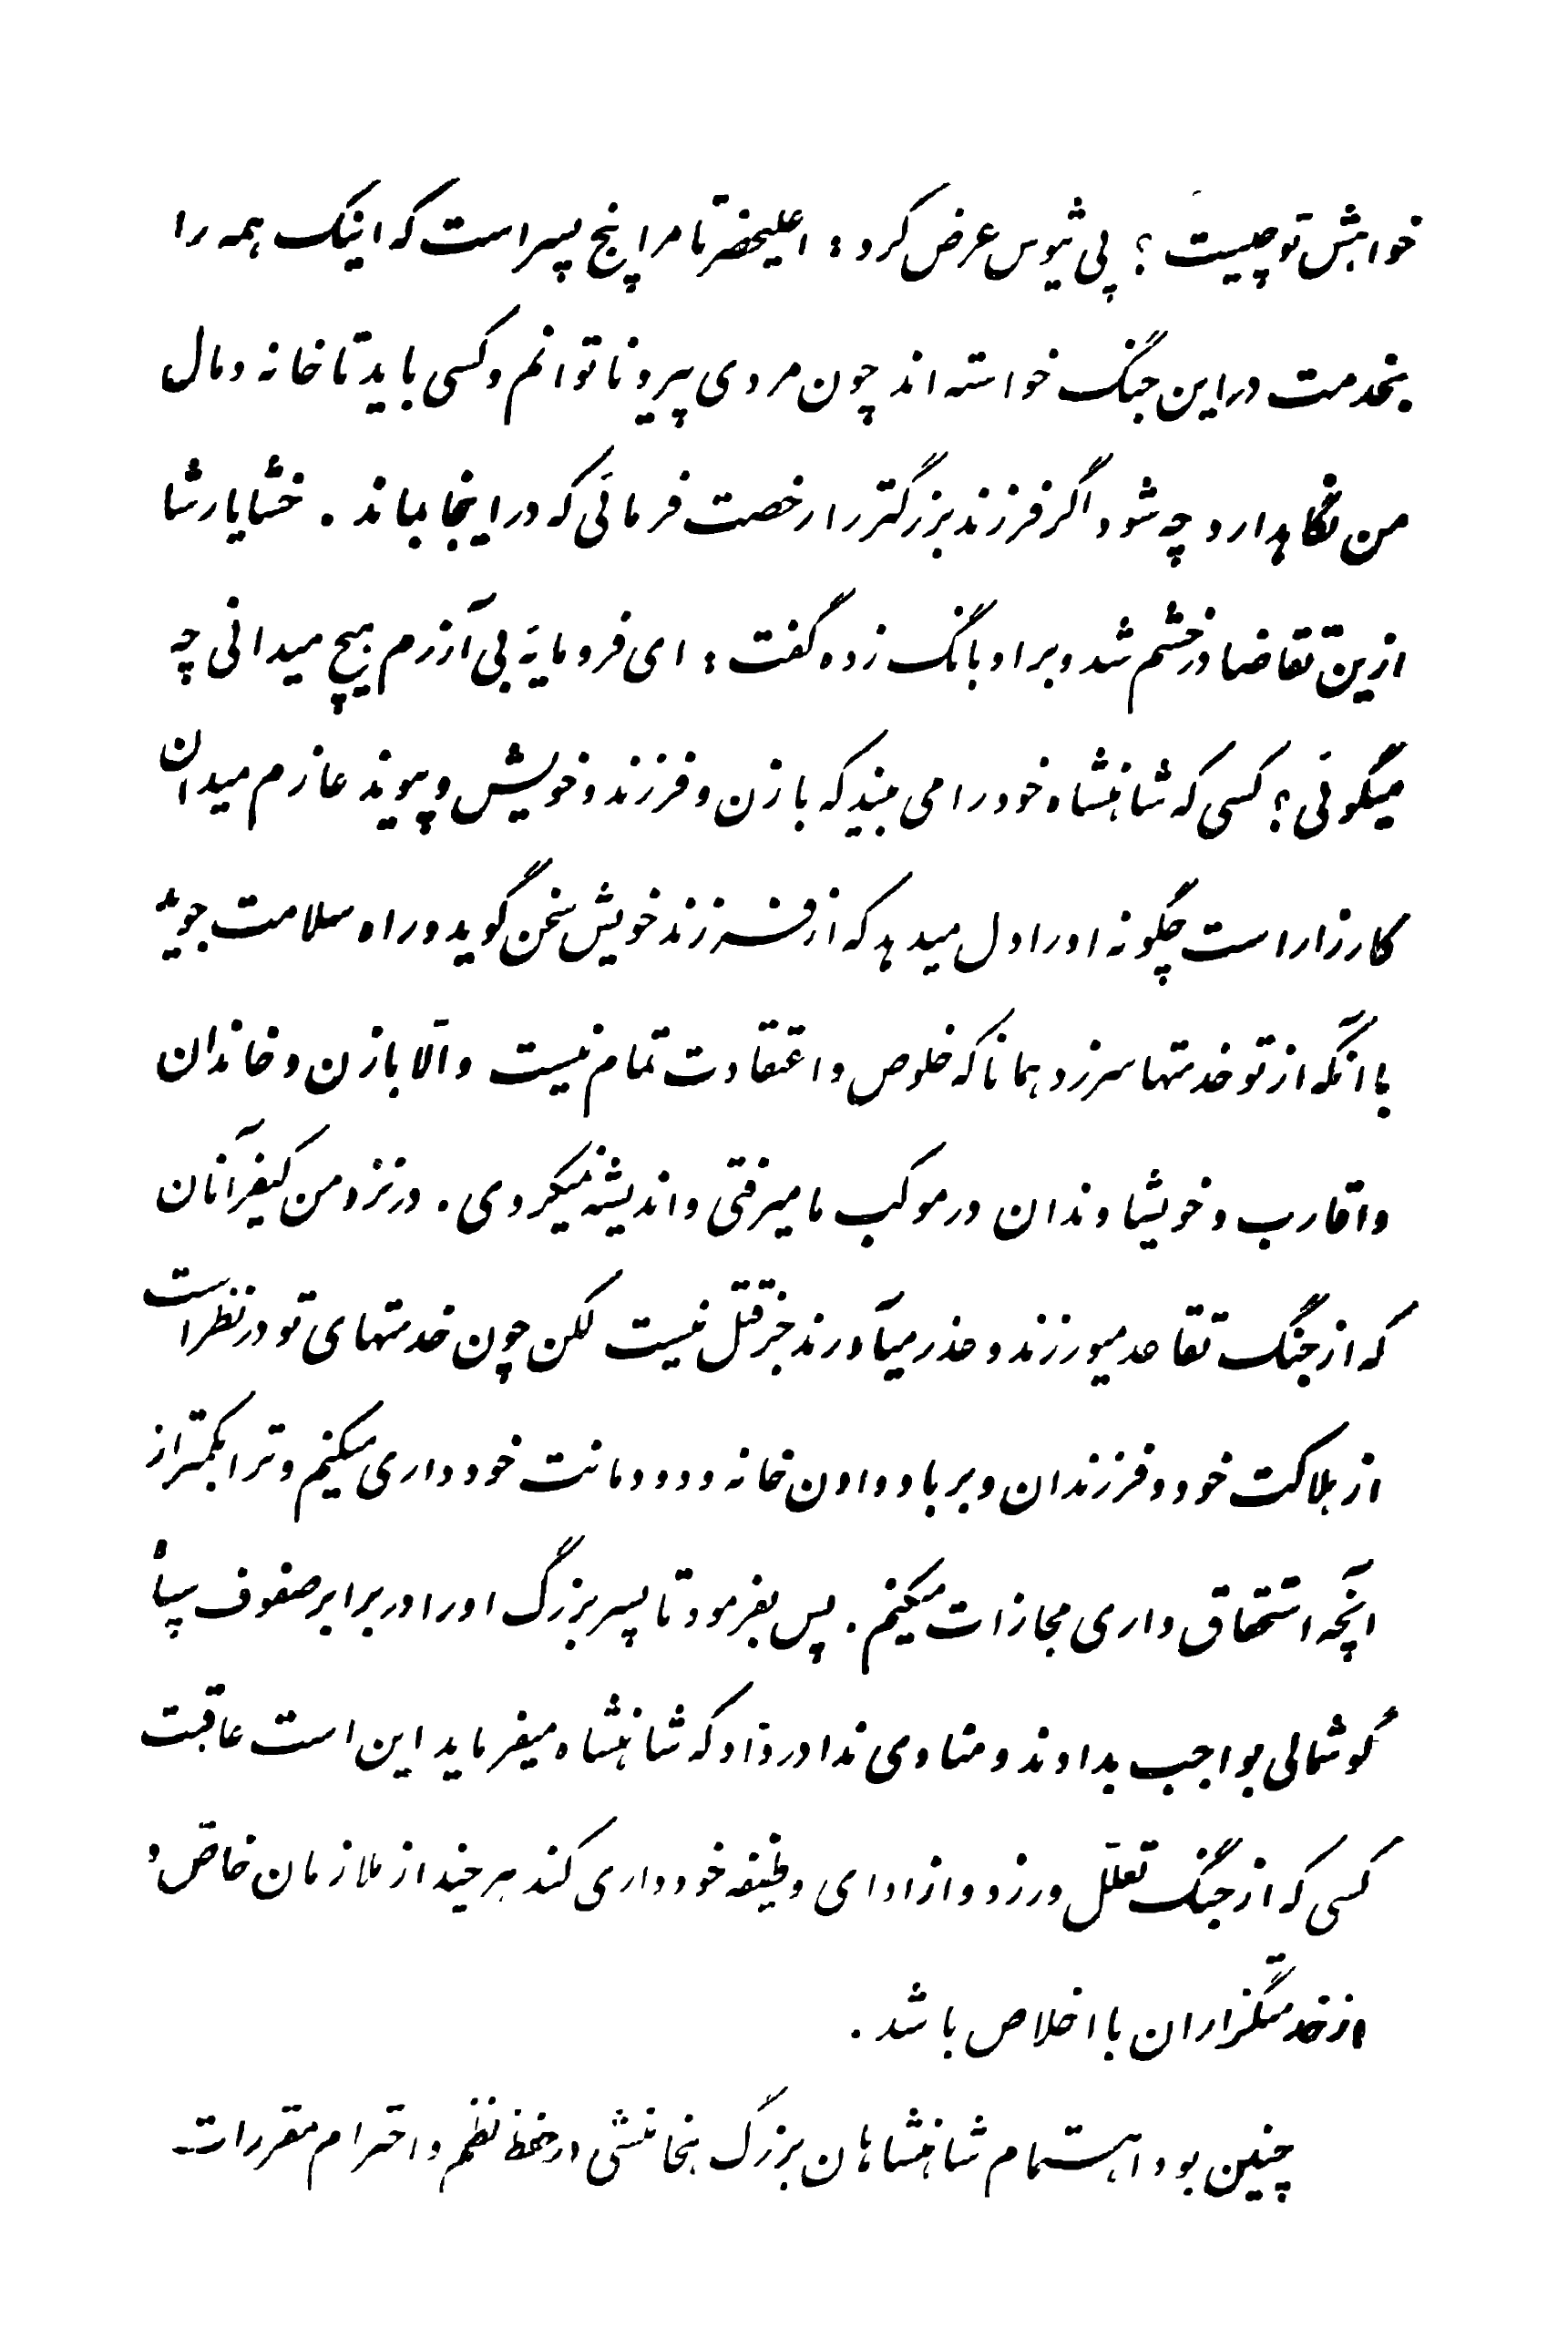 خواهش تو چیست ؟ پی ثیوس عرض کرد : اعلیحضرتا مرا پنج پسر است که اینک همه را
بخدمت در این جنگ خواسته اند چون مردی پیر و ناتوانم و کسی باید تا خانه و مال
من نگاهدارد چه شود اگر فرزند بزرگتر را رخصت فرمائی که در اینجا بماند . خشایارشا
ازین تقاضا در خشم شد و بر او بانگ زده گفت : ای فرومایهٔ بی آزرم هیچ میدانی چه
میگوئی ؟ کسی که شاهنشاه خود را می بیند که با زن و فرزند و خویش و پیوند عازم میدان
کارزار است چگونه او را دل میدهد که از فرزند خویش سخن گوید و راه سلامت جوید
با آنکه از تو خدمتها سرزد همانا که خلوص و اعتقادت تمام نیست و الّا با زن و خاندان
و اقارب و خویشاوندان در موکب ما میرفتی و اندیشه نمیکردی . در نزد من کیفر آنان
که از جنگ تقاعد میورزند و عذر میآورند جز قتل نیست لکن چون خدمتهای تو در نظر است
از هلاکت خود و فرزندان و بر باد دادن خانه و دودمانت خودداری میکنیم و ترا بکمتر از
آنچه استحقاق داری مجازات میکنیم . پس بفرمود تا پسر بزرگ او را در برابر صفوف سپاه
گوشمالی بواجب بدادند و منادی ندا در داد که شاهنشاه میفرماید این است عاقبت
کسی که از جنگ تعلّل ورزد و از ادای وظیفه خودداری کند هر چند از ملازمان خاصّ و
از خدمتگزاران با اخلاص باشد .
چنین بود اهتمام شاهنشاهان بزرگ هخامنشی در حفظ نظم و احترام مقررات